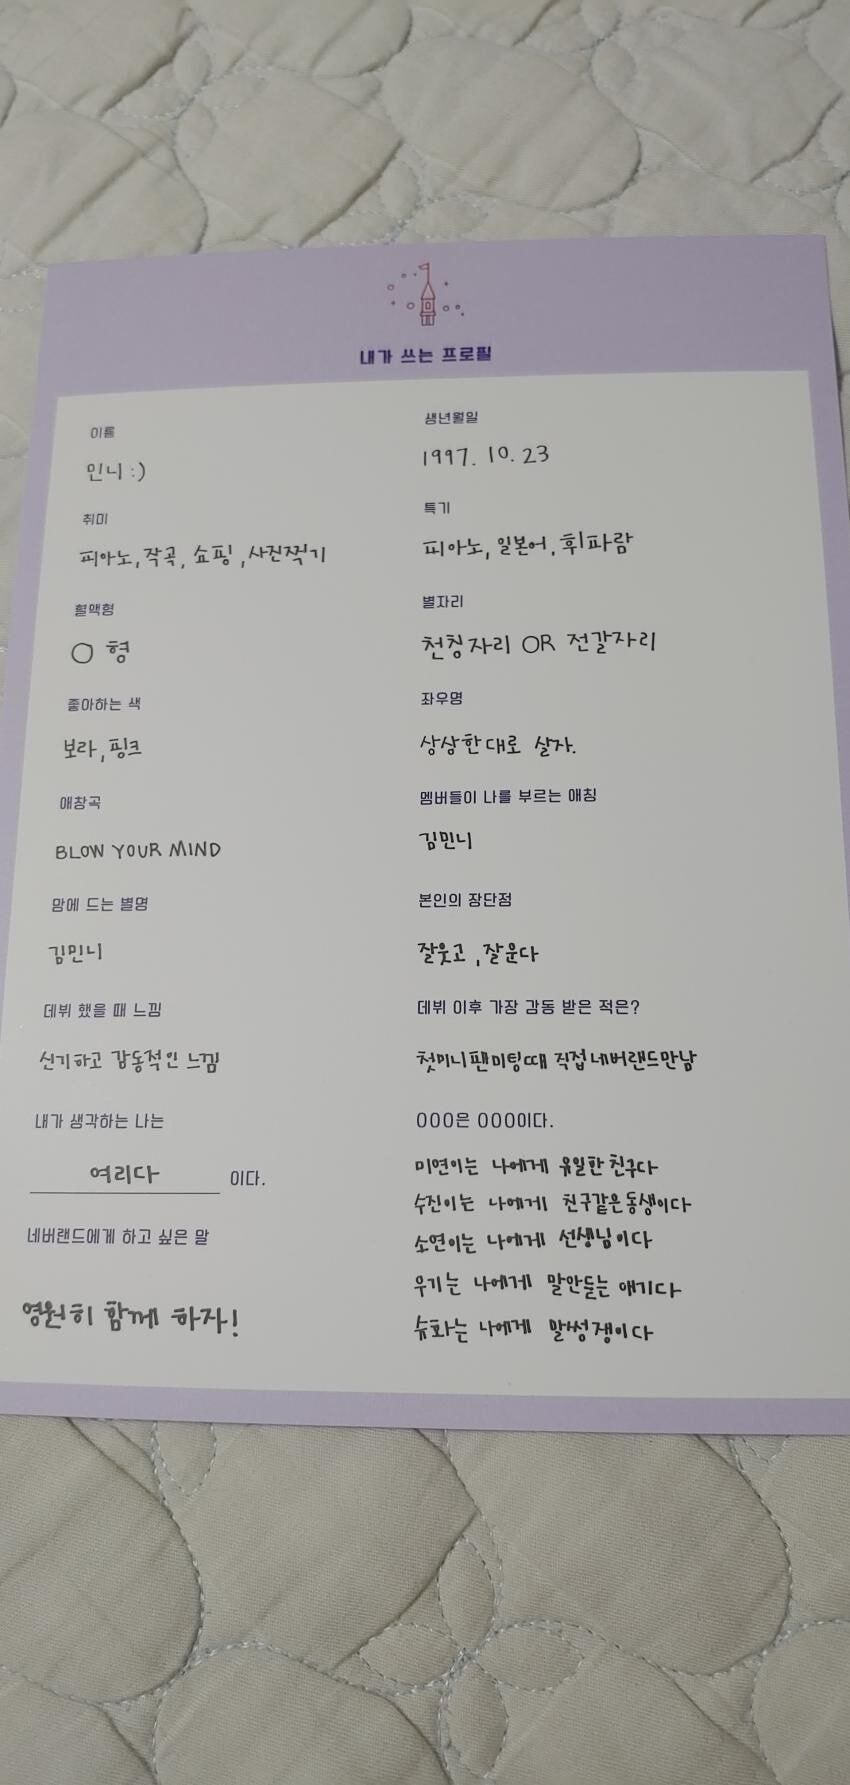 내가 쓰는 프로필
이름
민니 :)
생년월일
1997. 10. 23
취미
피아노, 작곡, 쇼핑, 사진찍기
특기
피아노, 일본어, 휘파람
혈액형
O 형
별자리
천칭자리 OR 전갈자리
좋아하는 색
보라, 핑크
좌우명
상상한대로 살자.
애창곡
BLOW YOUR MIND
멤버들이 나를 부르는 애칭
김민니
맘에 드는 별명
김민니
본인의 장단점
잘웃고, 잘운다
데뷔 했을 때 느낌
신기하고 감동적인 느낌
데뷔 이후 가장 감동 받은 적은?
첫미니팬미팅때 직접네버랜드만남
내가 생각하는 나는
여리다 이다.
OOO은 OOO이다.
미연이는 나에게 유일한친구다
수진이는 나에게 친구같은동생이다
소연이는 나에게 선생님이다
우기는 나에게 말안듣는 애기다
슈화는 나에게 말썽쟁이다
네버랜드에게 하고 싶은 말
영원히 함께 하자!